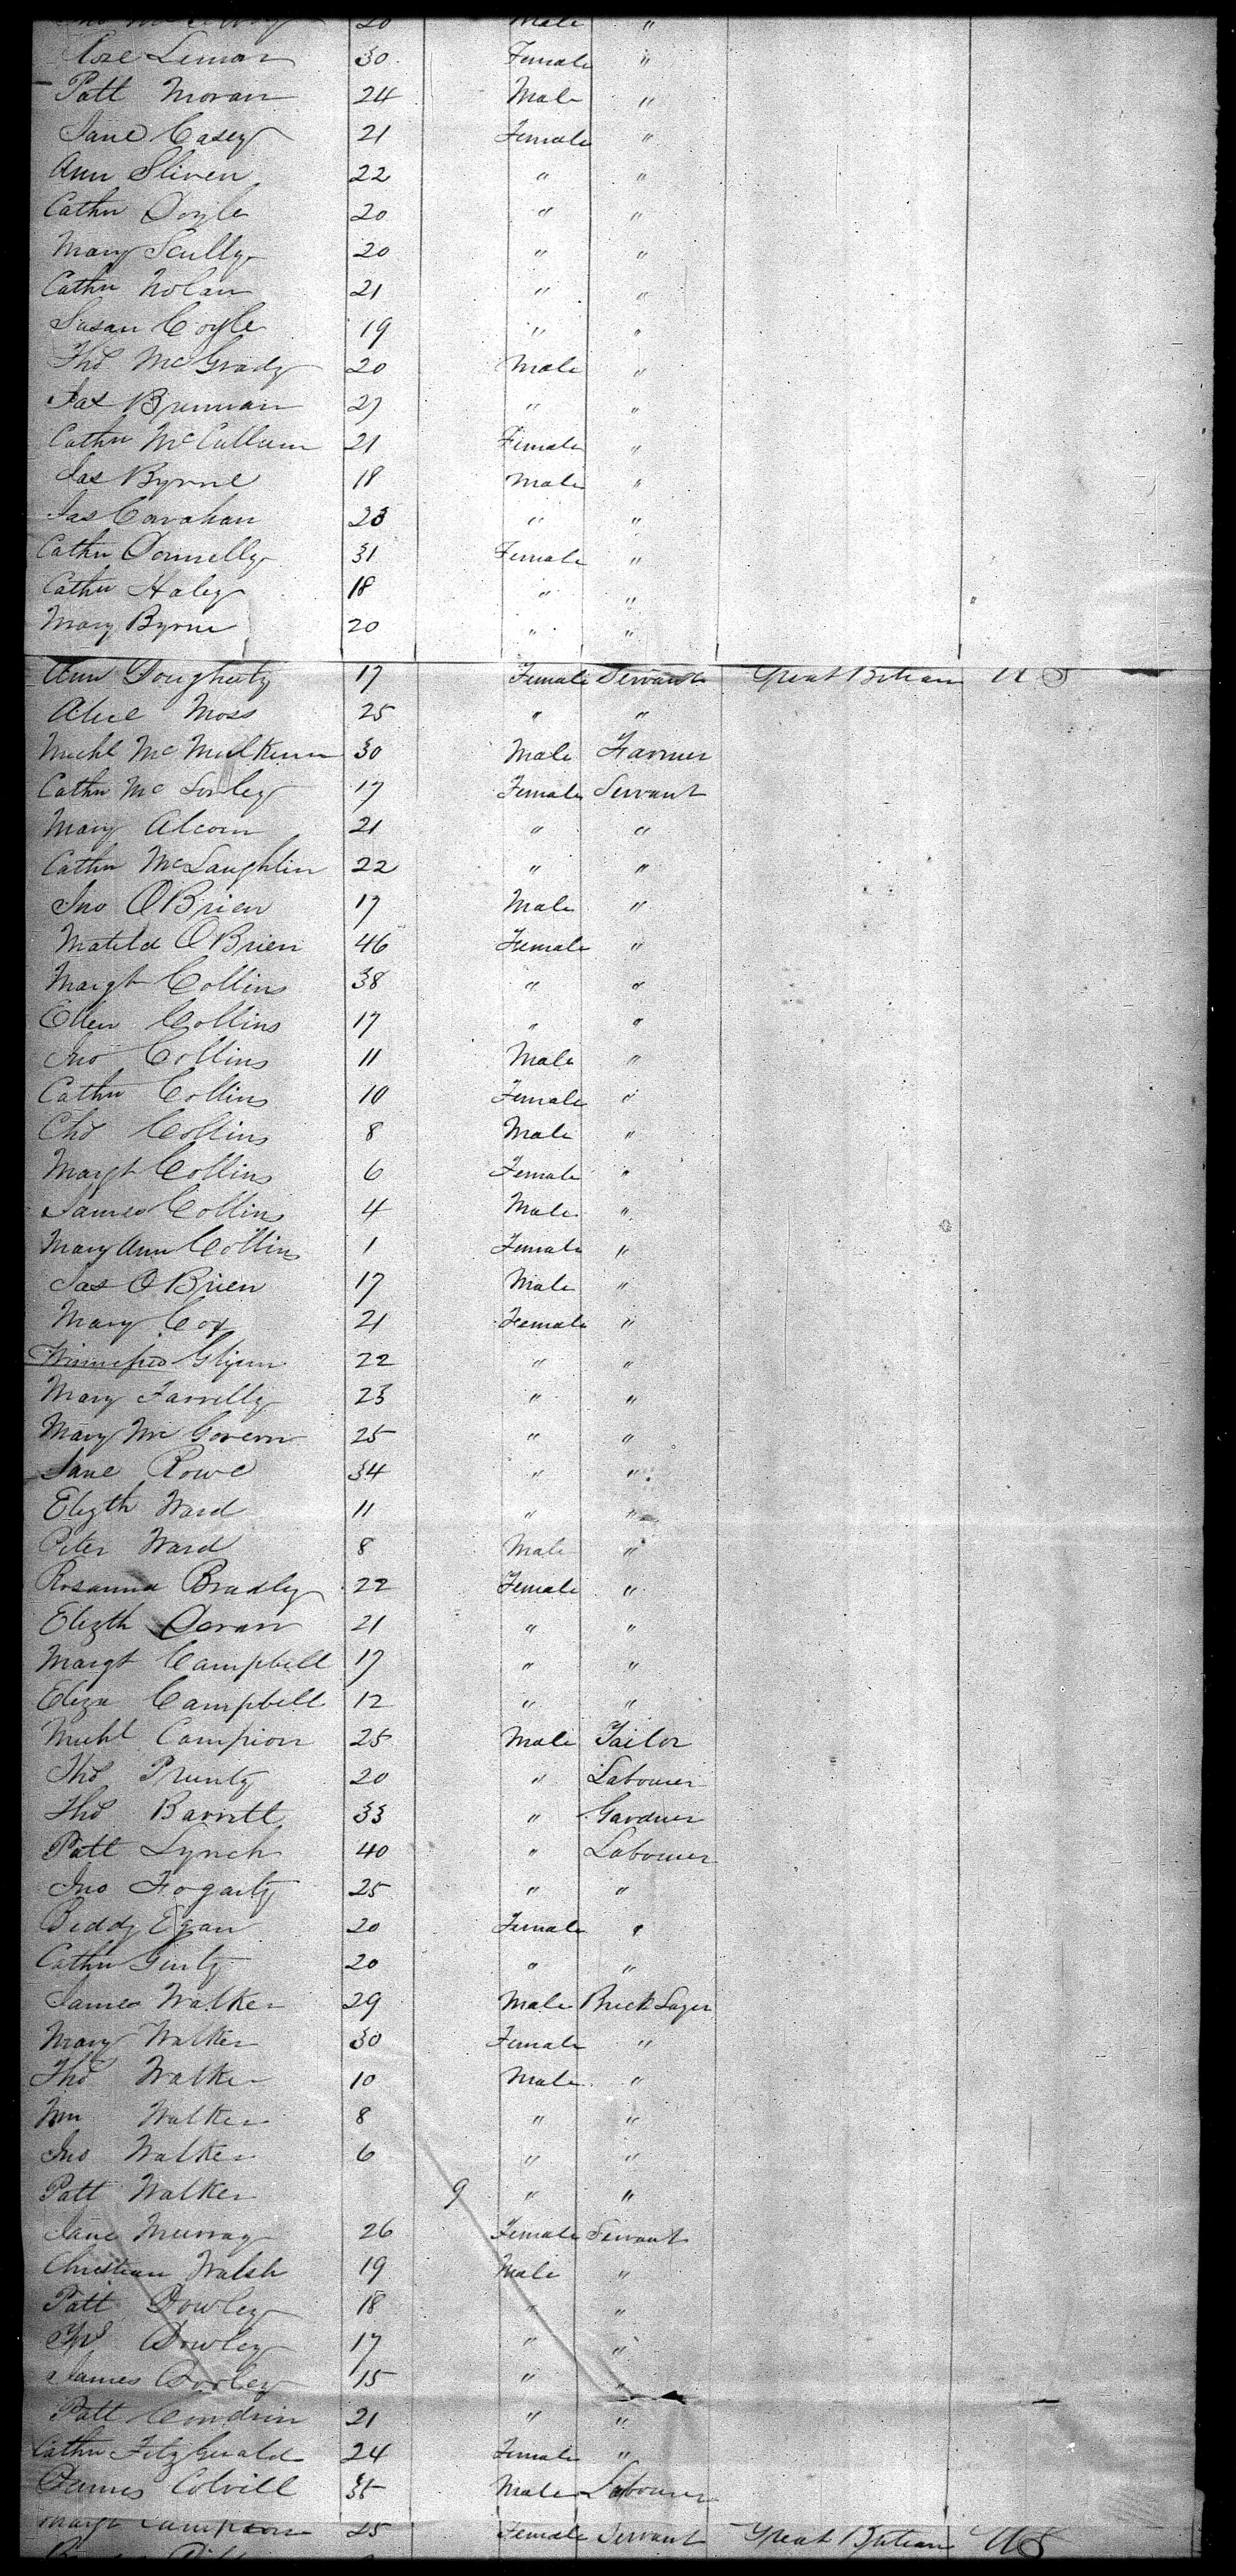 20 Male "
Rose Lemon 30 Female "
Patt Moran 24 Male "
Jane Casey 21 Female "
Ann Sliven 22 " "
Cathn Doyle 20 " "
Mary Scully 20 " "
Cathn Nolan 21 " "
Susan Coyle 19 " "
Thos McGrady 20 Male "
Jas Brennan 27 " "
Cathn McCallum 21 Female "
Jas Byrne 18 Male "
Jas Canahan 23 " "
Cathn Donnelly 31 Female "
Cathn Haley 18 " "
Mary Byrne 20 " "
Ann Dougherty 17 Female Servant Great Britain U S
Alice Moss 25 " "
Michl McMulkin 30 Male Farmer
Cathn McSorley 17 Female Servant
Mary Alcorn 21 " "
Cathn McLaughlin 22 " "
Jno OBrien 17 Male "
Matild OBrien 46 Female "
Margt Collins 38 " "
Ellen Collins 17 " "
Jno Collins 11 Male "
Cathn Collins 10 Female "
Chs Collins 8 Male "
Margt Collins 6 Female "
James Collins 4 Male "
Mary Ann Collins 1 Female "
Jas OBrien 17 Male "
Mary Cox 21 Female "
Winnefred Glynn 22 " "
Mary Farrelly 23 " "
Mary McGovern 25 " "
Jane Rowe 34 " "
Elizth Ward 11 " "
Peter Ward 8 Male "
Rosanna Bradley 22 Female "
Elizth Doran 21 " "
Margt Campbell 17 " "
Eliza Campbell 12 " "
Michl Campion 25 Male Tailor
Thos Prunty 20 " Labourer
Thos Barrett 33 " Gardner
Patt Lynch 40 " Labourer
Jno Fogarty 25 " "
Biddy Egan 20 Female "
Cathn Ginty 20 " "
James Walker 29 Male Brick Layer
Mary Walker 30 Female "
Thos Walker 10 Male "
Wm Walker 8 " "
Jno Walker 6 " "
Patt Walker 9 " "
Jane Murray 26 Female Servant
Christian Walsh 19 Male "
Patt Dowley 18 " "
Thos Dowley 17 " "
James Dooley 15 " "
Patt Condrin 21 " "
Cathn FitzGerald 24 Female "
James Colvill 35 Male Labourer
Margt Campion 25 Female Servant Great Britain U S